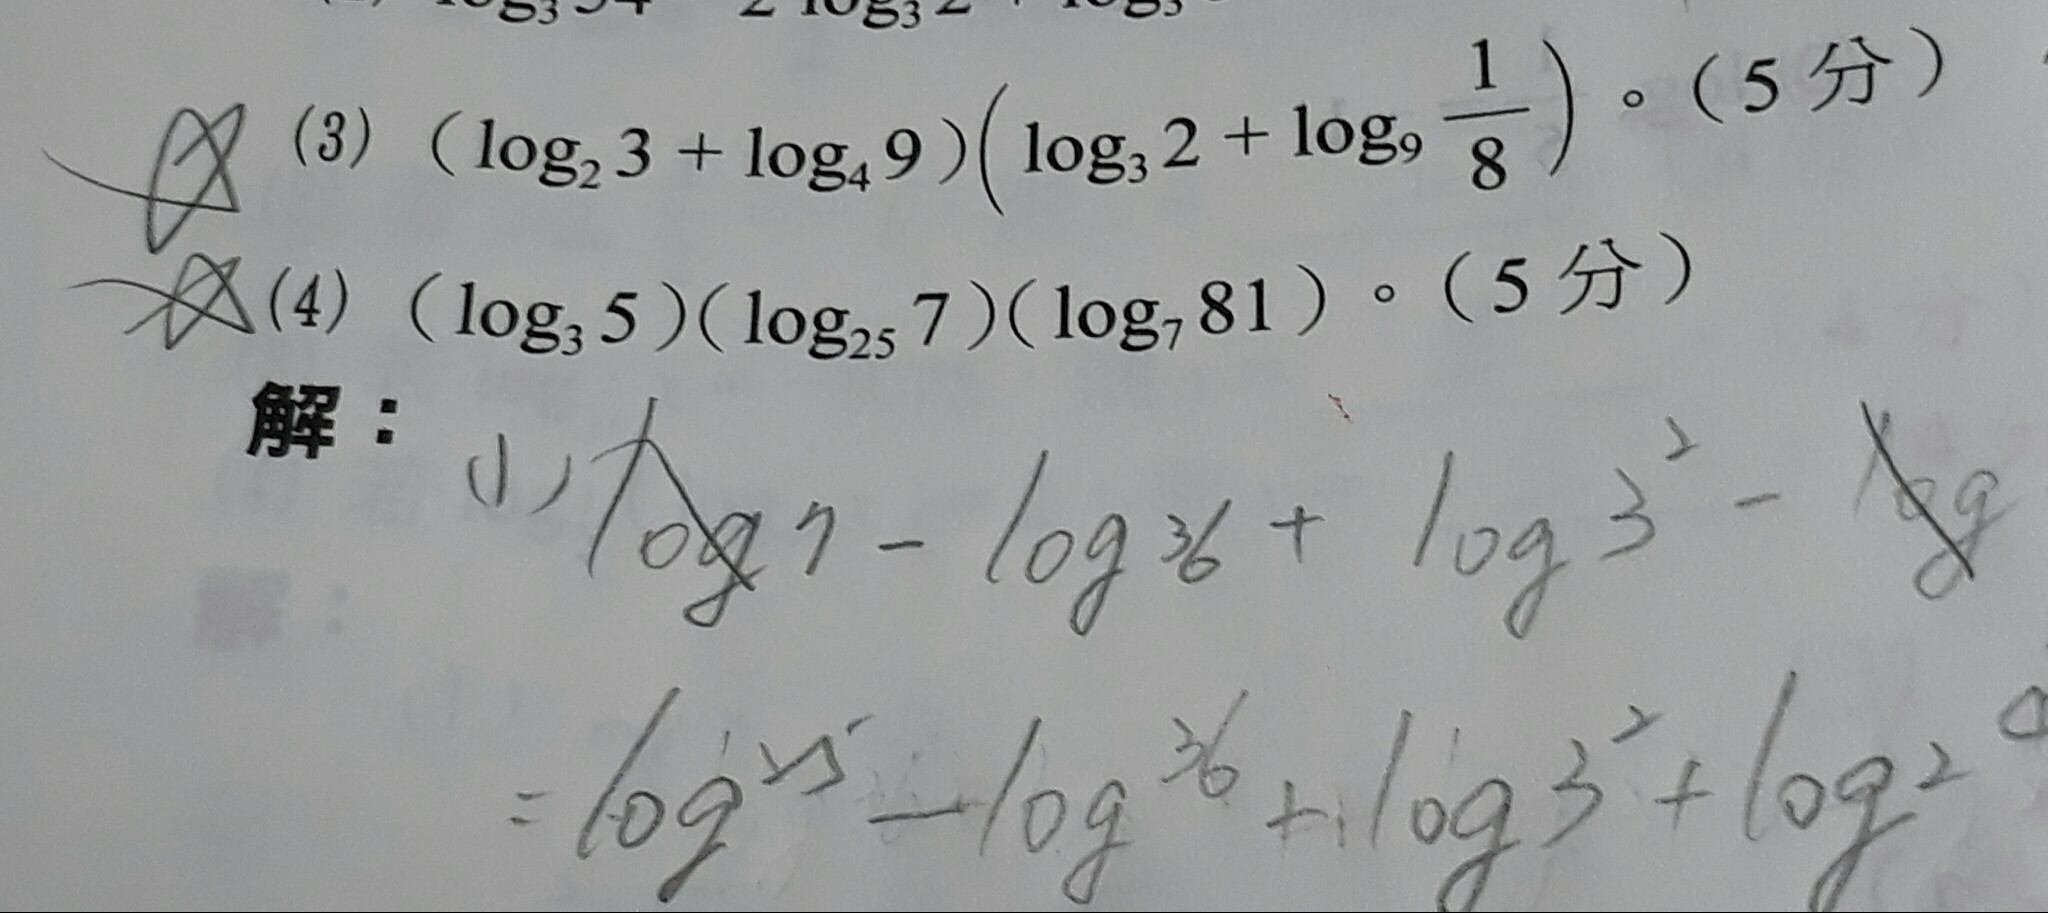 log₃54 2 log₃2 + log₃
(3) (log₂3 + log₄9)(log₃2 + log₉ 1/8)。(5 分)
(4) (log₃5)(log₂₅7)(log₇81)。(5 分)
解：
(1) log 7 - log 36 + log 3² - log
= log 25 - log 36 + log 3² + log 2